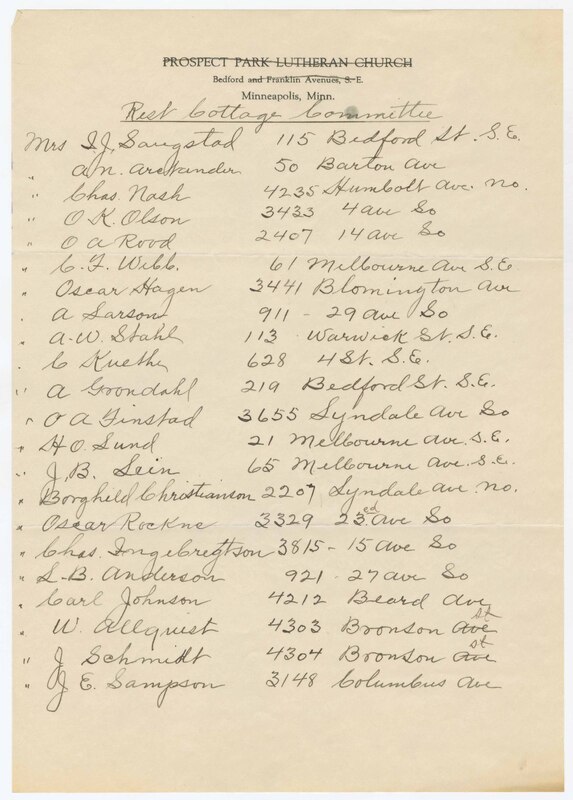 PROSPECT PARK LUTHERAN CHURCH
Bedford and Franklin Avenues, S. E.
Minneapolis, Minn.
Rest Cottage Committee
Mrs I. J. Saugstad 115 Bedford St. S.E.
" A. N. Arckander 50 Barton Ave
" Chas. Nash 4235 Humbolt Ave. No.
" O. K. Olson 3433 4 Ave So
" O A Rood 2407 14 Ave So
" C. F. Webb. 61 Melbourne Ave S.E.
" Oscar Hagen 3441 Blomington Ave
" A Larson 911 - 29 Ave So
" A. W. Stahl 113 Warwick St. S.E.
" C Kuethe 628 4 St. S.E.
" A Grondahl 219 Bedford St. S.E.
" O A Finstad 3655 Lyndale Ave So
" H O. Lund 21 Melbourne Ave. S.E.
" J. B. Sein 65 Melbourne Ave. S.E.
" Borghild Christianson 2207 Lyndale Ave No.
" Oscar Rockne 3329 23ed Ave So
" Chas. Ingebregtson 3815 - 15 Ave So
" L. B. Anderson 921 - 27 Ave So
" Carl Johnson 4212 Beard Ave
" W. Allquist 4303 Bronson Ave st
" J Schmidt 4304 Bronson Ave st
" J E. Sampson 3148 Columbus Ave